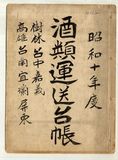 昭和十年度
酒類運送台帳
樹林 台中 嘉義
高雄 台南 宜蘭 屏東